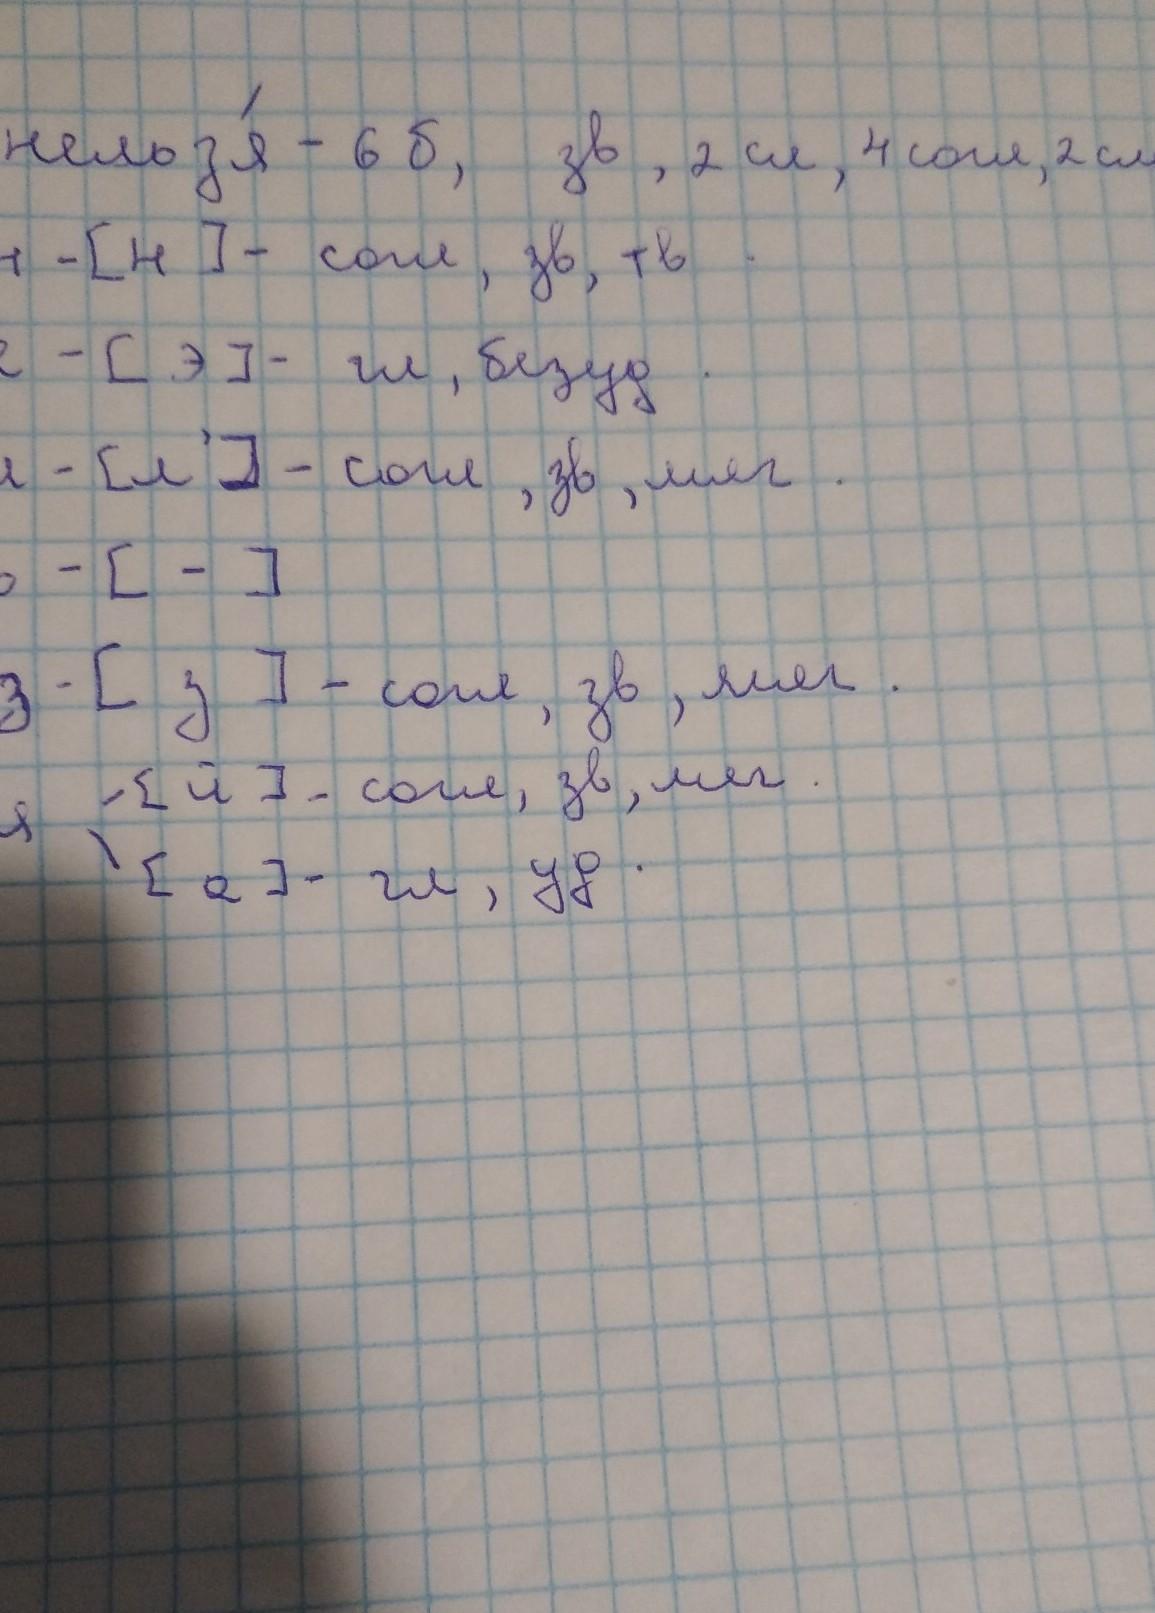 нельзя́ - 6 б, зв, 2 сл, 4 согл, 2 сл
н - [н] - согл, зв, тв.
е - [э] - гл, безуд.
л - [л'] - согл, зв, мяг.
ь - [-]
з - [з] - согл, зв, мяг.
я - [й] - согл, зв, мяг.
\ [а] - гл, уд.